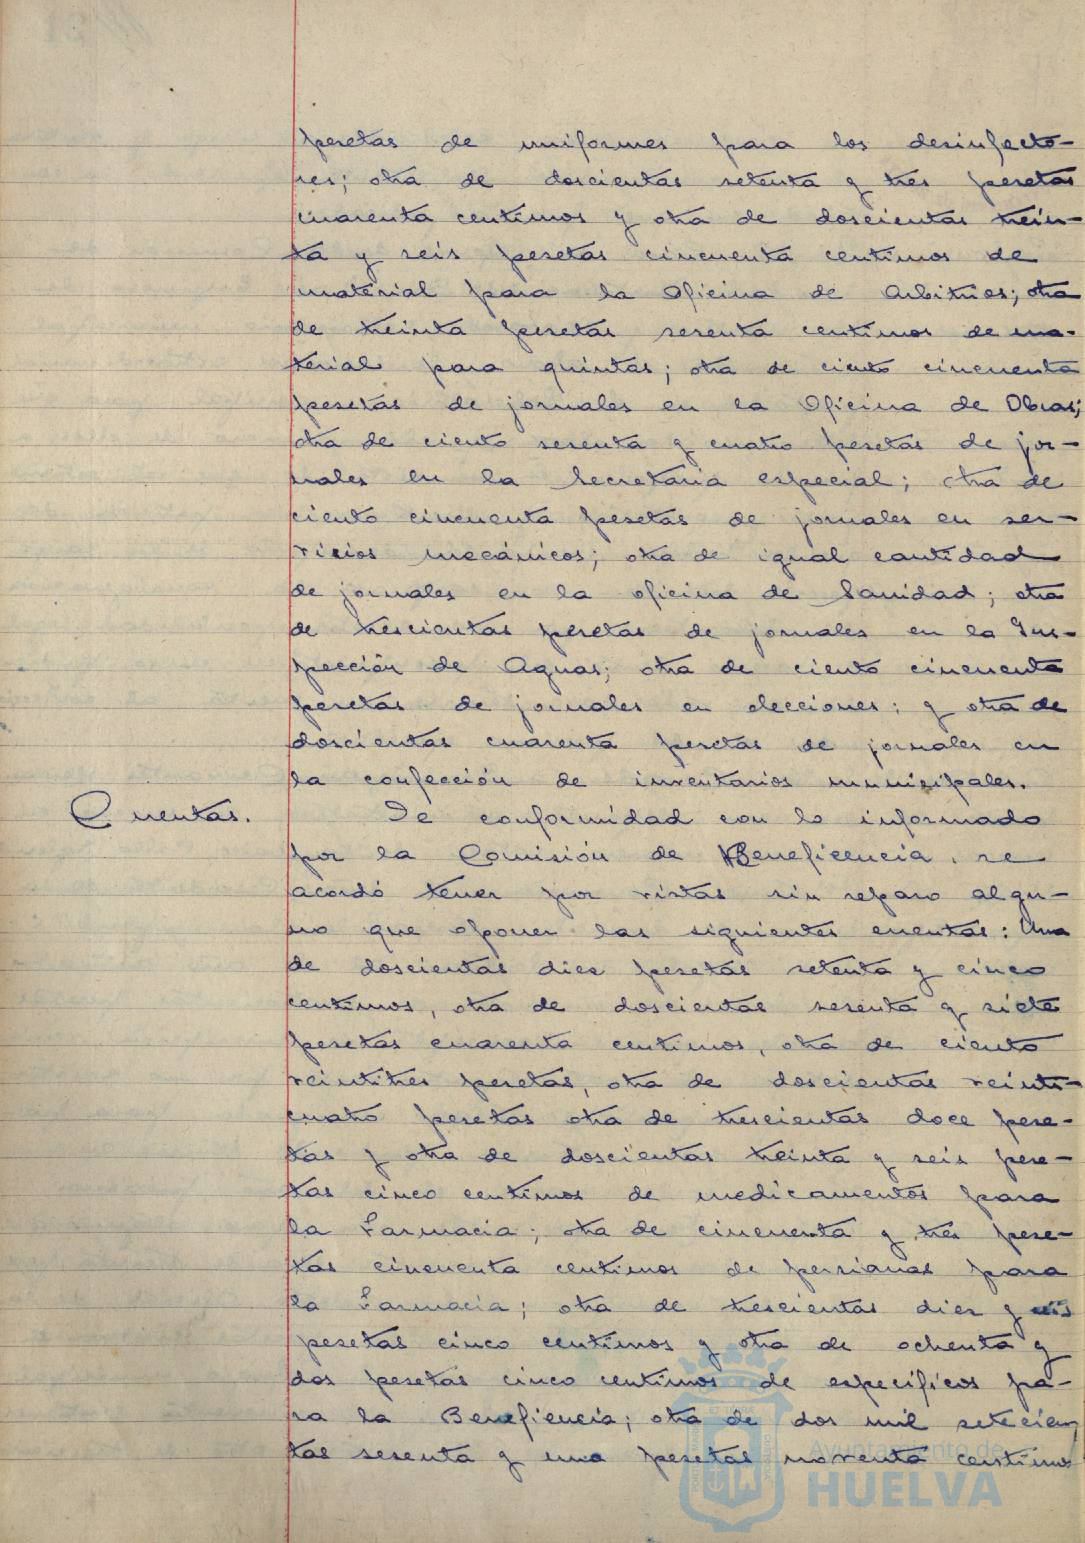 pesetas de uniformes para los desinfecto-
res; otra de doscientas setenta y tres pesetas
cuarenta centimos y otra de doscientas trein-
ta y seis pesetas cincuenta centimos de
material para la Oficina de Arbitrios; otra
de treinta pesetas sesenta centimos de ma-
terial para quintas; otra de ciento cincuenta
pesetas de jornales en la Oficina de Obras;
otra de ciento sesenta y cuatro pesetas de jor-
nales en la Secretaria especial; otra de
ciento cincuenta pesetas de jornales en ser-
vicios mecánicos; otra de igual cantidad
de jornales en la oficina de Sanidad; otra
de trescientas pesetas de jornales en la Ins-
pección de Aguas; otra de ciento cincuenta
pesetas de jornales en elecciones; y otra de
doscientas cuarenta pesetas de jornales en
la confección de inventarios municipales.
Cuentas. De conformidad con lo informado
por la Comisión de Beneficencia, se
acordó tener por vistas sin reparo algu-
no que oponer las siguientes cuentas: Una
de doscientas diez pesetas setenta y cinco
centimos, otra de doscientas sesenta y siete
pesetas cuarenta centimos, otra de ciento
veintitres pesetas, otra de doscientas veinti-
cuatro pesetas otra de trescientas doce pese-
tas y otra de doscientas treinta y seis pese-
tas cinco centimos de medicamentos para
la Farmacia; otra de cincuenta y tres pese-
tas cincuenta centimos de persianas para
la Farmacia; otra de trescientas diez y seis
pesetas cinco centimos y otra de ochenta y
dos pesetas cinco centimos de especificos pa-
ra la Beneficencia; otra de dos mil setecien-
tas sesenta y una pesetas noventa centimos
Ayuntamiento de
HUELVA